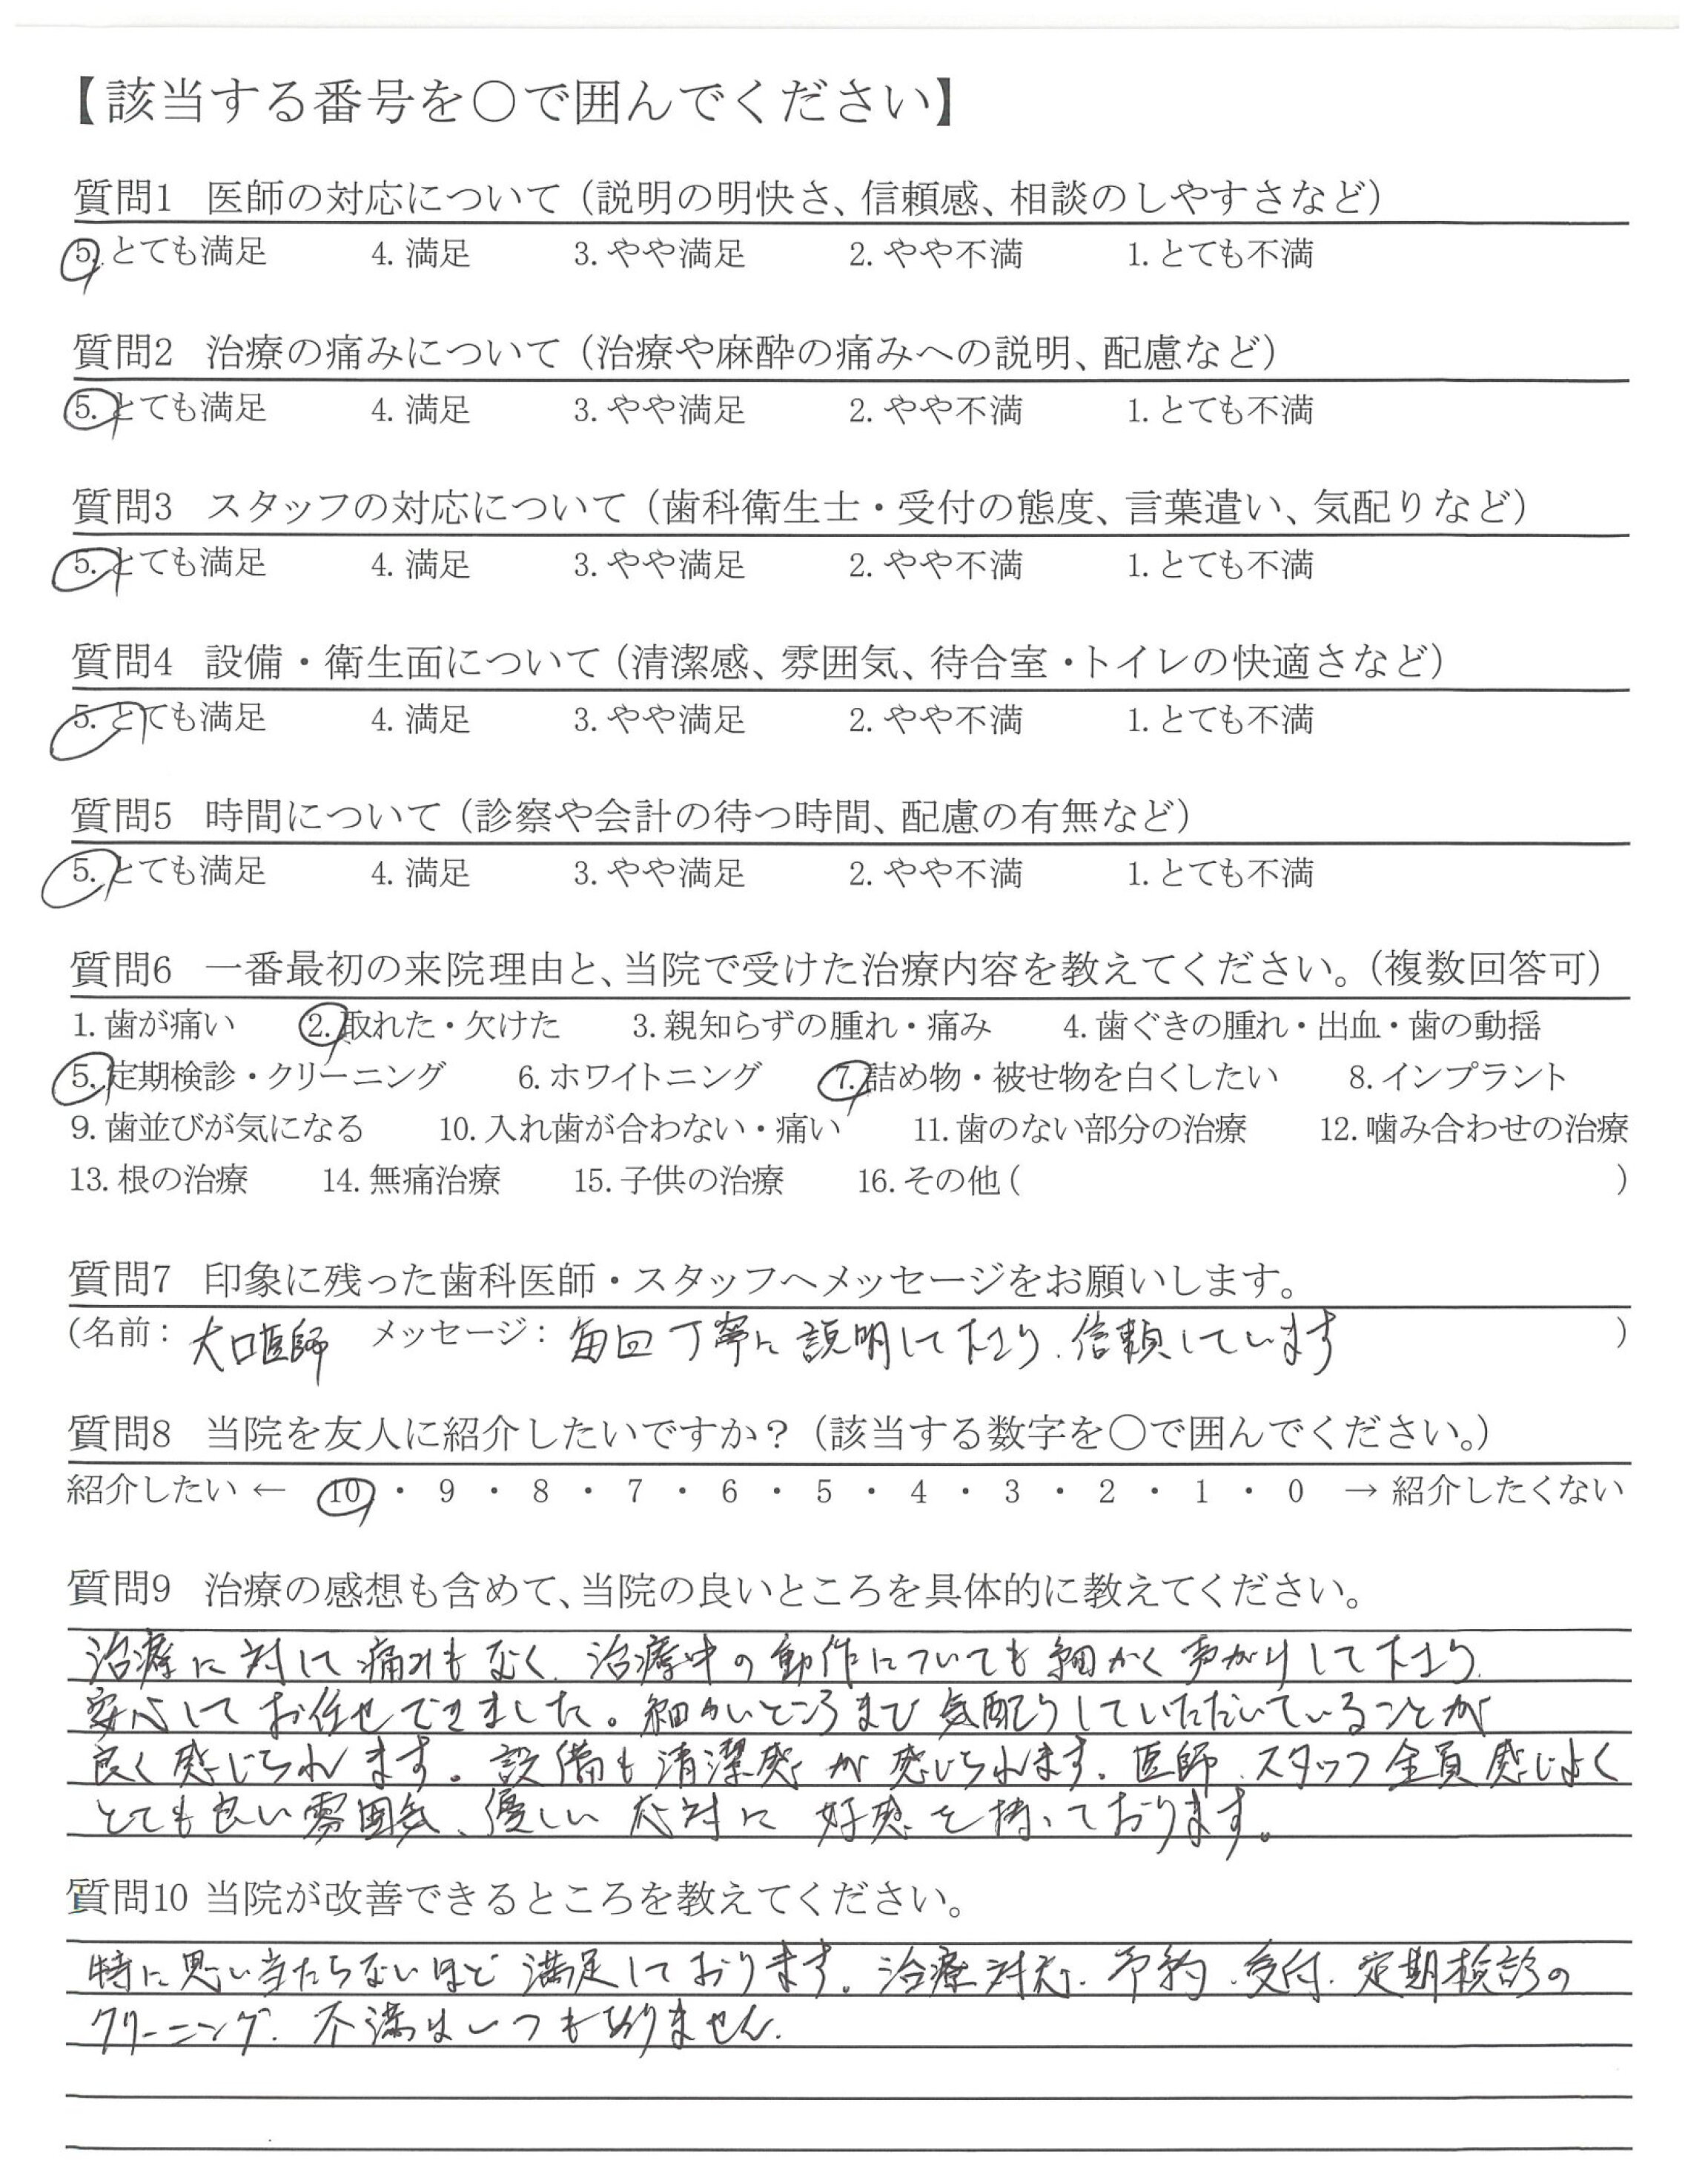 【該当する番号を○で囲んでください】
質問1 医師の対応について（説明の明快さ、信頼感、相談のしやすさなど）
5. とても満足 4. 満足 3. やや満足 2. やや不満 1. とても不満
質問2 治療の痛みについて（治療や麻酔の痛みへの説明、配慮など）
5. とても満足 4. 満足 3. やや満足 2. やや不満 1. とても不満
質問3 スタッフの対応について（歯科衛生士・受付の態度、言葉遣い、気配りなど）
5. とても満足 4. 満足 3. やや満足 2. やや不満 1. とても不満
質問4 設備・衛生面について（清潔感、雰囲気、待合室・トイレの快適さなど）
5. とても満足 4. 満足 3. やや満足 2. やや不満 1. とても不満
質問5 時間について（診察や会計の待つ時間、配慮の有無など）
5. とても満足 4. 満足 3. やや満足 2. やや不満 1. とても不満
質問6 一番最初の来院理由と、当院で受けた治療内容を教えてください。（複数回答可）
1. 歯が痛い 2. 取れた・欠けた 3. 親知らずの腫れ・痛み 4. 歯ぐきの腫れ・出血・歯の動揺
5. 定期検診・クリーニング 6. ホワイトニング 7. 詰め物・被せ物を白くしたい 8. インプラント
9. 歯並びが気になる 10. 入れ歯が合わない・痛い 11. 歯のない部分の治療 12. 噛み合わせの治療
13. 根の治療 14. 無痛治療 15. 子供の治療 16. その他（ ）
質問7 印象に残った歯科医師・スタッフへメッセージをお願いします。
（名前： 大口医師 メッセージ： 毎回丁寧に説明して下さり、信頼しています ）
質問8 当院を友人に紹介したいですか？（該当する数字を○で囲んでください。）
紹介したい ← 10 ・ 9 ・ 8 ・ 7 ・ 6 ・ 5 ・ 4 ・ 3 ・ 2 ・ 1 ・ 0 → 紹介したくない
質問9 治療の感想も含めて、当院の良いところを具体的に教えてください。
治療に対して痛みもなく、治療中の動作についても細かく声がけして下さり、
安心してお任せできました。細かいところまで気配りしていただいていることが
良く感じられます。設備も清潔感が感じられます。医師、スタッフ全員感じよく
とても良い雰囲気、優しい応対に好感を持っております。
質問10 当院が改善できるところを教えてください。
特に思い当たらないほど満足しております。治療対応、予約、受付、定期検診の
クリーニング、不満はいつもありません。